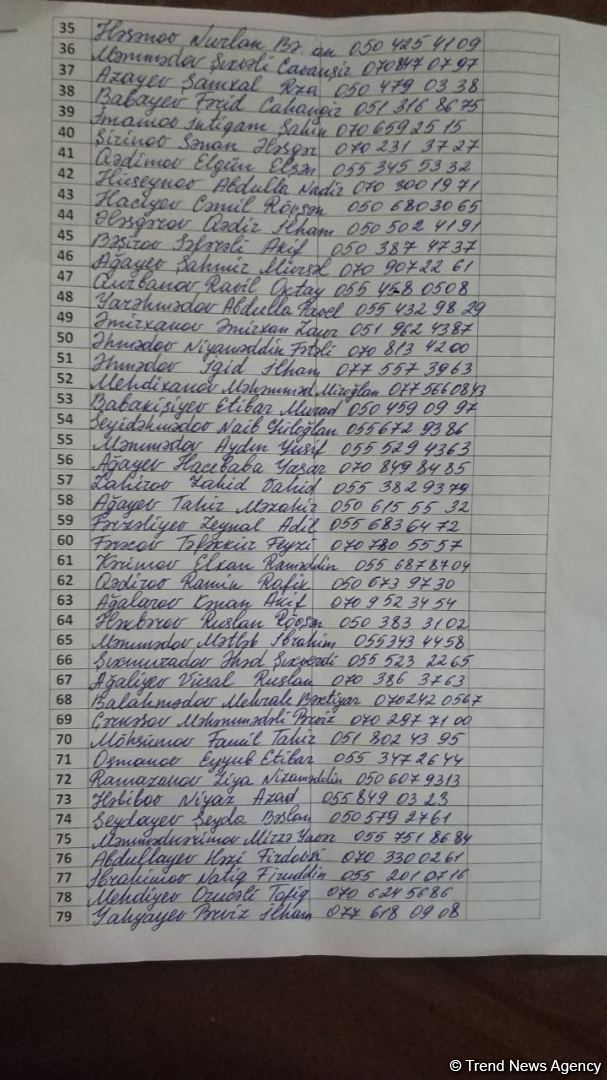 35 Həsənov Nurlan Bə an 050 425 41 09
36 Məmmədov Şıxəli Cavanşir 070 847 07 97
37 Azayev Şamxal Rza 050 479 03 38
38 Babayev Fərid Cahangir 051 316 86 75
39 İmamov İntiqam Şahin 070 659 25 15
40 Şirinov Sənan Ələsgər 070 231 37 27
41 Qədimov Elgün Elşən 055 345 53 32
42 Hüseynov Abdulla Nadir 070 300 19 71
43 Hacıyev Cəmil Rövşən 050 680 30 65
44 Ələsgərov Qədir İlham 050 502 41 91
45 Bəşirov Səfərəli Akif 050 387 47 37
46 Ağayev Şahmir Mürsəl 070 907 22 61
47 Qurbanov Ravil Oktay 055 458 05 08
48 Yarəhmədov Abdulla 055 432 98 29
49 Əmirxanov Əmirxan Zaur 051 962 43 87
50 Əhmədov Niyaməddin Fətəli 070 813 42 00
51 Əhmədov İgid İlham 077 557 39 63
52 Mehdixanov Məhəmməd Miroğlan 077 566 08 43
53 Babakişiyev Etibar Murad 050 459 09 97
54 Seyidəhmədov Naib 055 672 93 86
55 Məmmədov Aydın Yusif 055 529 43 63
56 Ağayev Hacıbaba Yaşar 070 849 84 85
57 Zahirov Zahid Vahid 055 382 93 79
58 Ağayev Tahir Məzahir 050 615 55 32
59 Fərzəliyev Zeynal Adil 055 683 64 72
60 Fərəcov Təfəkkür Feyzi 070 780 55 57
61 Kərimov Elxan Raməddin 055 687 87 04
62 Qədirov Ramin Rafik 050 673 97 30
63 Ağalarov Kənan Akif 070 952 34 54
64 Ələkbərov Ruslan Rövşən 050 383 31 02
65 Məmmədov Mətləb İbrahim 055 343 44 58
66 Şıxmuradov Əhəd Şıxverdi 055 523 22 65
67 Ağaliyev Vüsal Ruslan 070 386 37 63
68 Balahmədov Mehralı Bəxtiyar 070 242 05 67
69 Məhəmmədəli Pərviz 070 297 71 00
70 Möhsümov Famil Tahir 051 802 43 95
71 Osmanov Eyyub Etibar 055 347 26 44
72 Ramazanov Ziya Nizaməddin 050 607 93 13
73 Həbibov Niyaz Azad 055 849 03 23
74 Seydayev Seyda Bəslan 050 579 27 61
75 Məmmədkərimov Mirzə Yavər 055 751 86 84
76 Abdullayev Həzi Firdovsi 070 330 02 61
77 İbrahimov Natiq Firuddin 055 201 07 16
78 Mehdiyev Tofiq 070 624 56 86
79 Yahyayev Pərviz İlham 077 618 09 08
© Trend News Agency